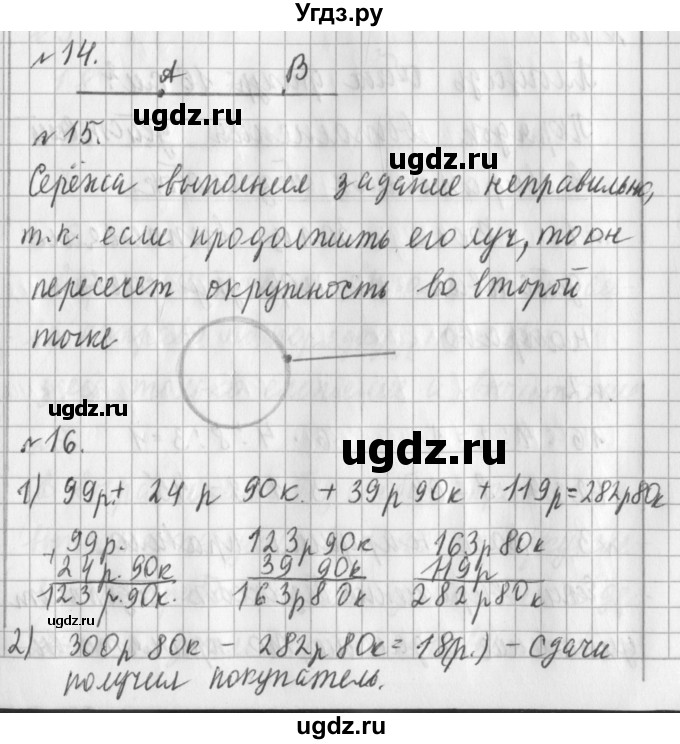 Угдз.ру
№14.
A B
ugdz.ru
№15.
ugdz.ru
Серёжа выполнил задание неправильно,
т.к. если продолжить его луч, то он
пересечет окружность во второй
точке
ugdz.ru
№16.
ugdz.ru
1) 99р.+ 24 р 90к. + 39р 90к + 119р=282р80к
99р. 123р90к 163р80к
+24р.90к 39 90к 119р
123р.90к. 163р80к 282р80к
ugdz.ru
2) 300р 80к - 282р 80к= 18(р.) - сдачи
получил покупатель.
ugdz.ru
ugdz.ru